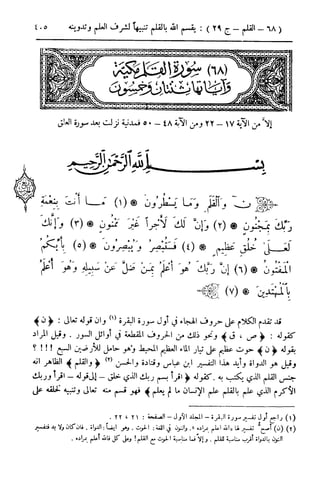 (٦٨ – القلم – ج ٢٩) : يقسم الله بالقلم تنبيهاً لشرف العلم وتدوينه ٤٠٥
(٦٨) سورة القلم مكية
وآياتها ثنتان وخمسون
إلا من الآية ١٧ – ٢٢ ومن الآية ٤٨ – ٥٠ فمدنية نزلت بعد سورة العلق
بسم الله الرحمن الرحيم
ن والقلم وما يسطرون * (١) ما أنت بنعمة
ربك بمجنون * (٢) وإن لك لأجرا غير ممنون * (٣) وإنك
لعلى خلق عظيم * (٤) فستبصر ويبصرون * (٥) بأييكم
المفتون * (٦) إن ربك هو أعلم بمن ضل عن سبيله وهو أعلم
بالمهتدين * (٧)
قد تقدم الكلام على حروف الهجاء في أول سورة البقرة (١) وان قوله تعالى : ﴿ن﴾
كقوله : ﴿ص ، ق﴾ ونحو ذلك من الحروف المقطعة في أوائل السور . وقيل المراد
بقوله ﴿ن﴾ حوت عظيم على تيار الماء العظيم المحيط وهو حامل للأرضين السبع !!! ؟
وقيل هو الدواة وأيد هذا التفسير ابن عباس وقتادة والحسن (٢) ﴿والقلم﴾ الظاهر انه
جنس القلم الذي يكتب به . كقوله ﴿اقرأ بسم ربك الذي خلق – إلى قوله – اقرأ وربك
الأكرم الذي علم بالقلم علم الإنسان ما لم يعلم﴾ فهو قسم منه تعالى وتنبيه لخلقه على
(١) راجع أول تفسير سورة البقرة – المجلد الأول – الصفحة : ٢١ ، ٢٢ .
(٢) ﴿ن﴾ أصح تفسير لها «الله أعلم بمراده» . والنون في اللغة : الحوت . وهو أيضاً : الدواة . فان كان ولا بد فتفسير
النون بالدواة أقرب مناسبة للقلم . وإلا فما مناسبة الحوت مع القلم ! وعلى كل فالله أعلم بمراده .